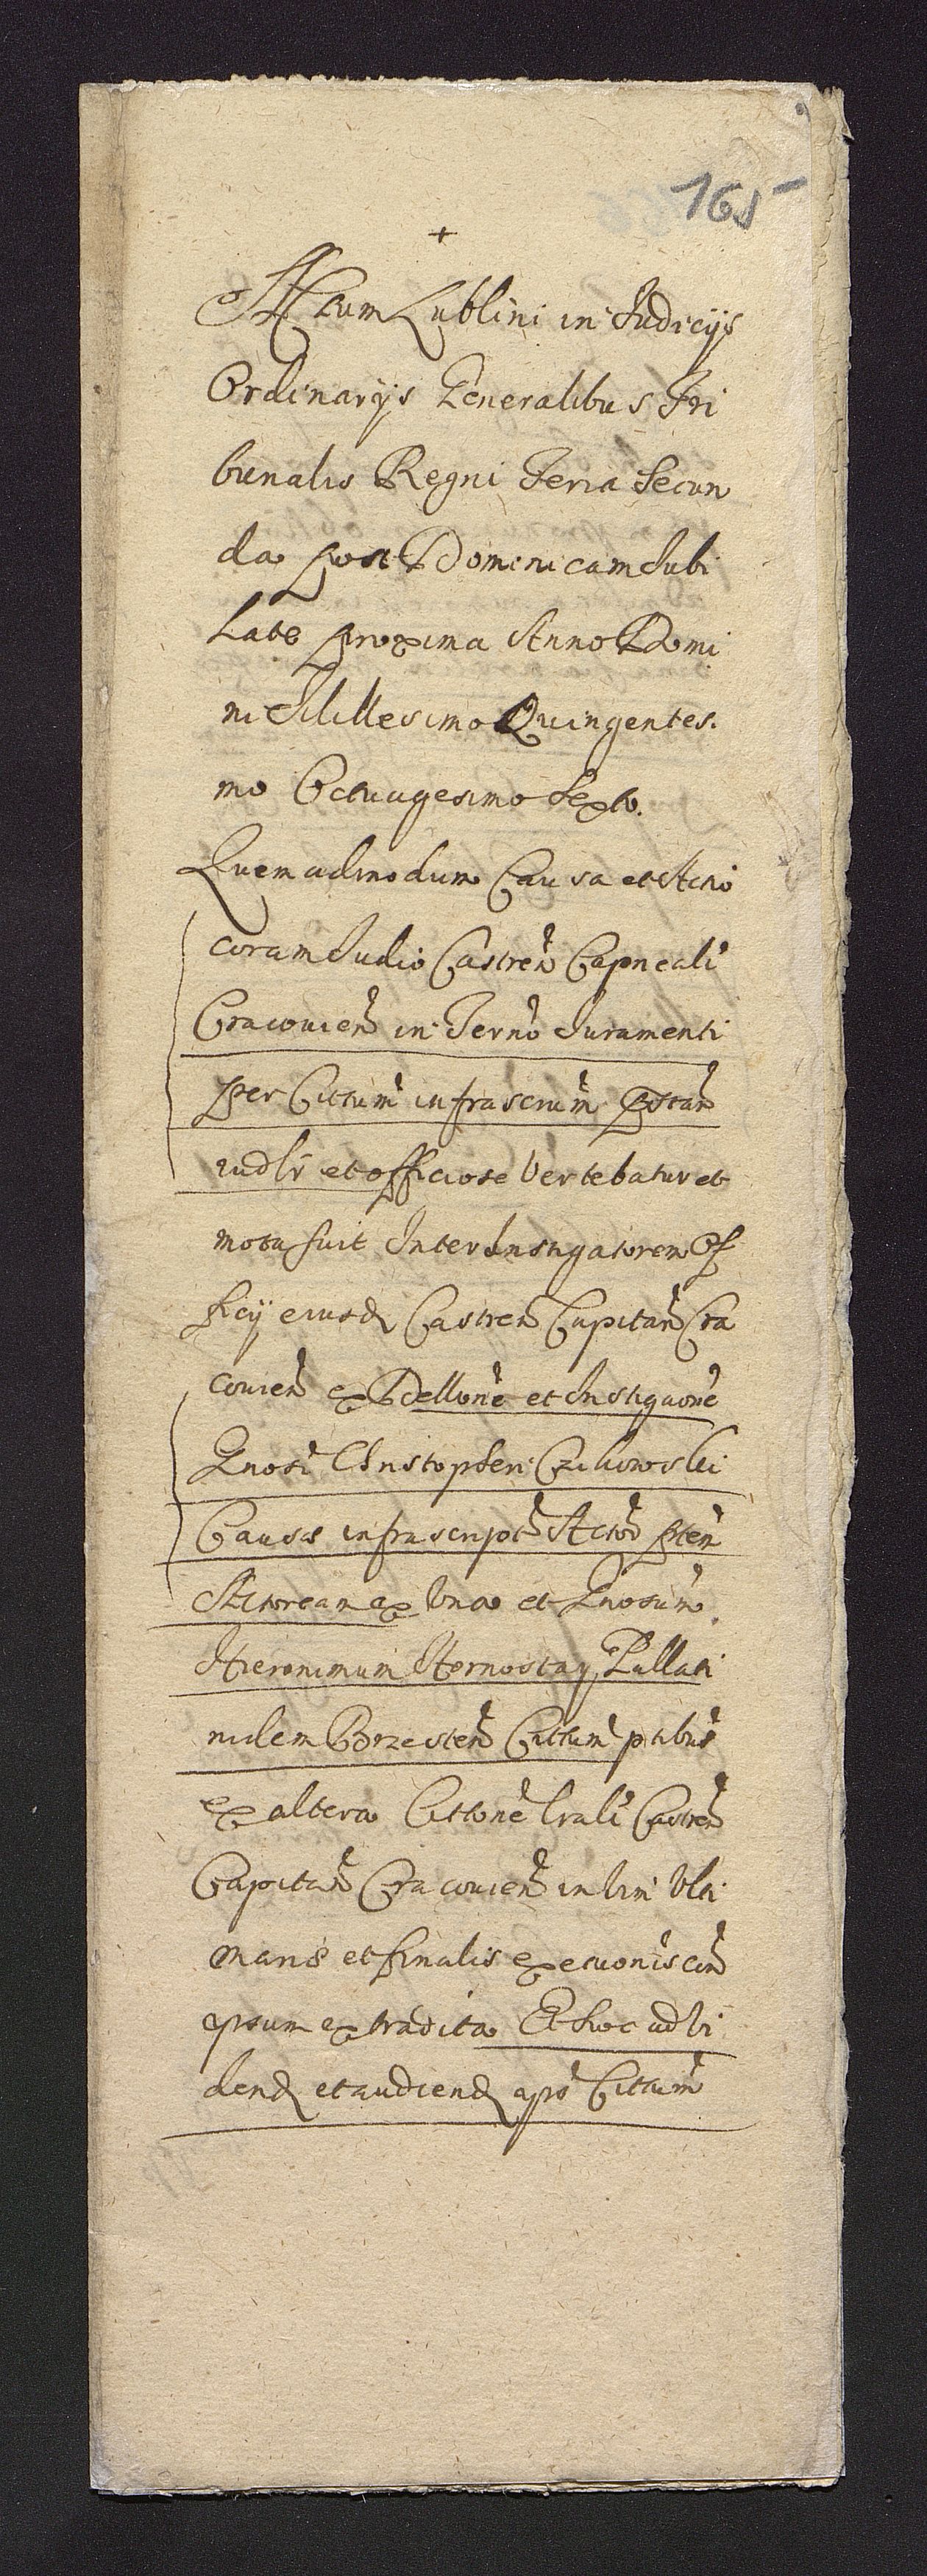 165
+
Actum Lublini in Judicijs
Ordinarijs Generalibus Tri
bunalis Regni Feria Secun
da post Dominicam Jubi
late proxima Anno Domi
ni Millesimo Quingentes.
mo Octuagesimo Sexto.
Quemadmodum Causa et Actio
coram Judio Castren Capneali
Cracouien in Termo Juramenti
per Cittum infrascrum pstan
iudlr et officiose Vertebatur et
mota fuit Inter Instigatorem Of
ficy eiusd Castren Capitan Cra
couien ex Dellone et Instiguone
Gnosi Christopheri Czikowski
Causae infrascript Acto pten
Actoream ex Vna et Gnosum
Hieronimum Hornostay Pallati
nidem Brzesten Cittum ptibus
ex altera Cittone lrali Castren
Capitan Cracouien in Vim Vlti
mariae et finalis execuonis cin
ipsum extradita Et hoc ad Vi
dend et audiend ipso Cittum